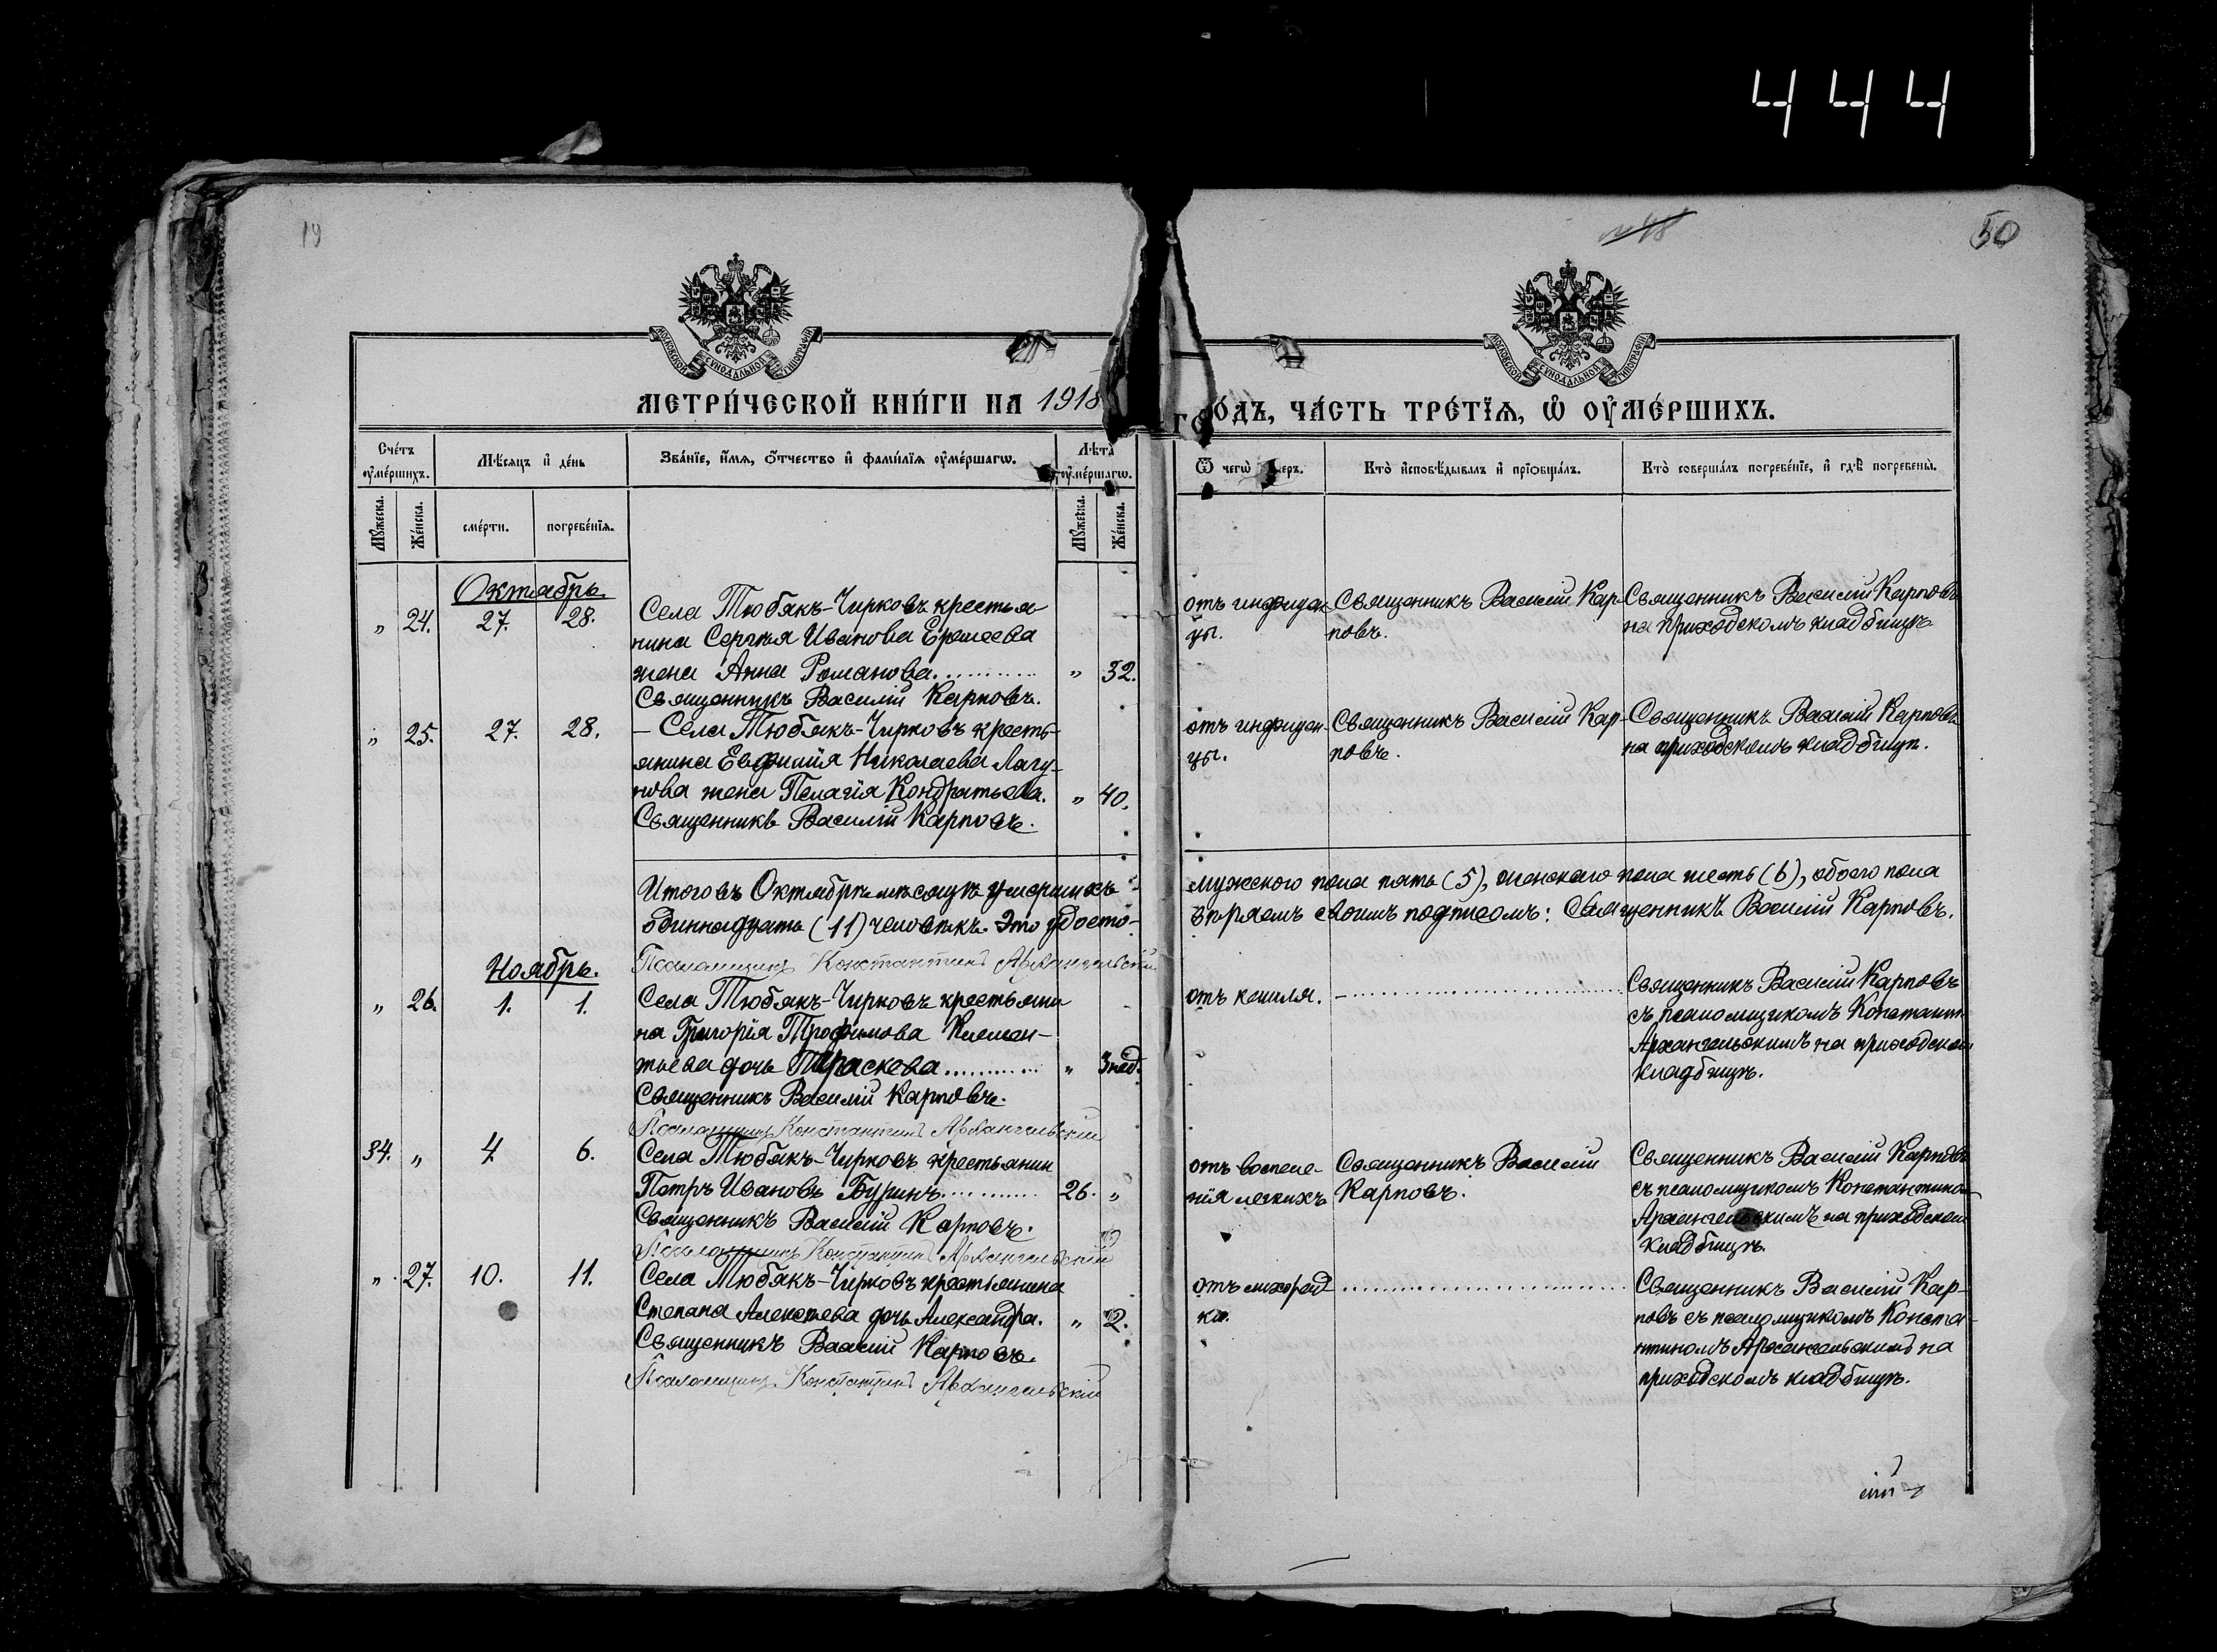 444
19
50
МОСКОВСКОЙ СѴНОДАЛЬНОЙ ТИПОГРАФІИ
МОСКОВСКОЙ СѴНОДАЛЬНОЙ ТИПОГРАФІИ
МЕТРИ́ЧЕСКОЙ КНИ́ГИ НА 1918
ГО́ДЪ, ЧА́СТЬ ТРЕ́ТЇѦ, Ѡ҆ ОУ҆МЕ́РШИХЪ.
Сче́тъ оу҆ме́ршихъ.
Мѣ́сяцъ и҆ де́нь
Зва́нїе, и҆́мя, ѻ҆́тчество и҆ фами́лїя оу҆ме́ршагѡ.
Лѣ́та оу҆ме́ршагѡ.
Ѿ чегѡ̀
Кто̀ и҆сповѣ́дывалъ и҆ прїѡбща́лъ.
Кто̀ соверша́лъ погребе́нїе, и҆ гдѣ̀ погребены̀.
Мꙋ́жеска.
Же́нска.
сме́рти.
погребе́нїя.
Мꙋ́жеска.
Же́нска.
Октябрь.
„ 24. 27. 28.
Села Тюбякъ-Чирковъ крестья
нина Сергѣя Иванова Еремеева
жена Анна Романова............ „ 32.
Священникъ Василій Карповъ.
отъ инфлуен-
цы.
Священникъ Василій Кар-
повъ.
Священникъ Василій Карповъ
на приходскомъ кладбищѣ
„ 25. 27. 28.
– Села Тюбякъ-Чирковъ кресть-
янина Евфимія Николаева Лагу-
нова жена Пелагія Кондратьева. „ 40.
Священникъ Василій Карповъ.
отъ инфлуен-
цы.
Священникъ Василій Кар-
повъ.
Священникъ Василій Карповъ
на приходскомъ кладбищѣ.
Итого въ Октябрѣ мѣсяцѣ умершихъ
мужского пола пять (5), женскаго пола шесть (6), обоего пола
одиннадцать (11) человѣкъ. Это удосто-
вѣряемъ своимъ подписомъ: Священникъ Василій Карповъ.
Псаломщикъ Константинъ Архангельскій
Ноябрь.
„ 26. 1. 1.
Села Тюбякъ-Чирковъ крестьяни
на Григорія Трофимова Клемен-
тьева дочь Параскева............ „ 3 нед.
Священникъ Василій Карповъ.
Псаломщикъ Константинъ Архангельскій
отъ кашля.
Священникъ Василій Карповъ
съ псаломщикомъ Константин.
Архангельскимъ на приходском
кладбищѣ.
34. „ 4. 6.
Села Тюбякъ-Чирковъ крестьянин
Петръ Ивановъ Буринъ............ 26. „
Священникъ Василій Карповъ.
Псаломщикъ Константинъ Архангельскій
отъ воспале-
нія легкихъ
Священникъ Василій
Карповъ.
Священникъ Василій Карповъ
съ псаломщикомъ Константином
Архангельскимъ на приходском
кладбищѣ.
„ 27. 10. 11.
Села Тюбякъ-Чирковъ крестьянина
Степана Алексѣева дочь Александра. „ 2.
Священникъ Василій Карповъ.
Псаломщикъ Константинъ Архангельскій
отъ лихорад
ки.
Священникъ Василій Кар-
повъ съ псаломщикомъ Конста-
нтиномъ Архангельскимъ на
приходскомъ кладбищѣ.